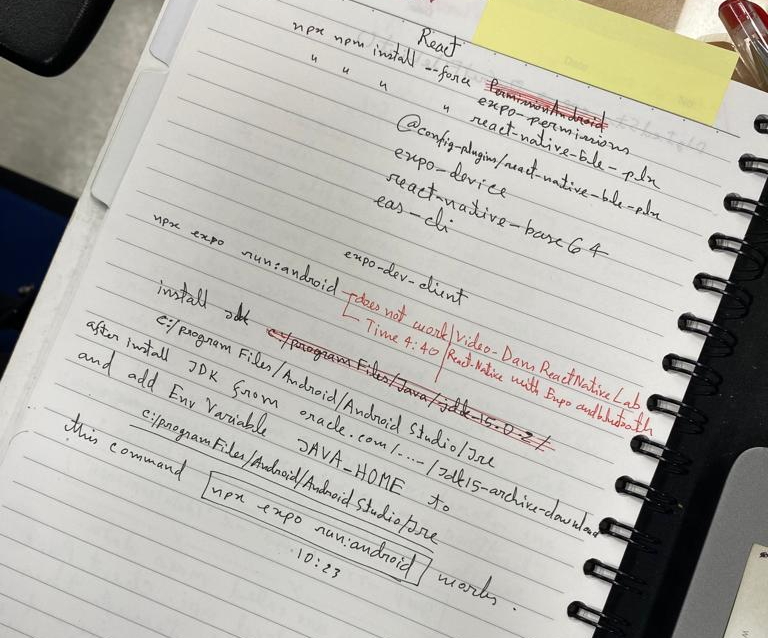 React
npx npm install --force PermissionAndroid
" " " expo-permissions
" react-native-ble-plx
@config-plugins/react-native-ble-plx
expo-device
react-native-base64
eas-cli
expo-dev-client
npx expo run:android
does not work
Time 4:40
Video- Dam ReactNative Lab
React-Native with Expo andblutooth
install Jdk c:/program Files/Java/jdk-15.0.2/
c:/program Files/Android/Android Studio/Jre
after install JDK from oracle.com/...../Jdk15-archive-download
and add Env Variable JAVA_HOME to
c:/program Files/Android/Android Studio/Jre
this command npx expo run:android works.
10:23